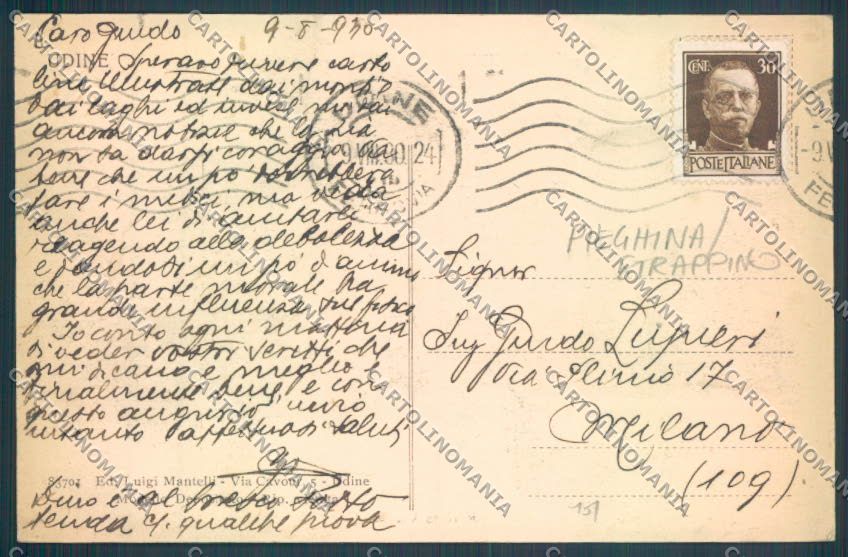 Caro Guido 9-8-930
UDINE
Speravo avere carto
line illustrate dai monti o
dai laghi ed invece mi dai
ancora notizie che la zia
non sta
bene che un po'
fare i medici, ma veda
anche lei di aiutarsi
reagendo alla debolezza
e un po' d'animo
che la parte morale ha
grande influenza sul fisico
Io conto ogni mattina
di veder vostri scritti che
mi dicano è meglio e
finalmente bene, e con
questo augurio invio
intanto affettuosi saluti
83701 Ed. Luigi Mantelli - Via Cavour, 5 - Udine
Dino è al
tenda c/ qualche prova
CENT. 30
POSTE ITALIANE
UDINE
9.VIII.30 24
FERROVIA
PIEGHINA/
STRAPPINO
Signor
Ing Guido Ligueri
Via Plinio 17
Milano
(109)
151
CARTOLINOMANIA